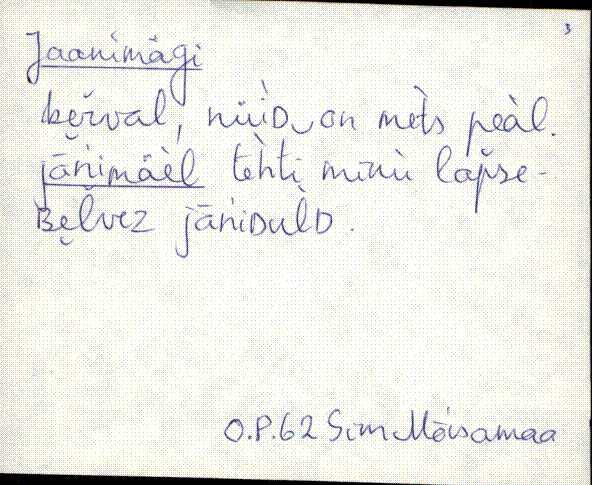 3
Jaanimägi
kèrval, nüìᴅ‿on mèts peàl.
jāǹimäèl tèhti minù lapse-
ʙe̮lvez jāǹiᴅulᴅ.
O.P.62 Sim Mõisamaa